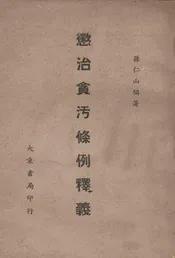 孫仁山編著
懲治貪汚條例釋義
大東書局印行